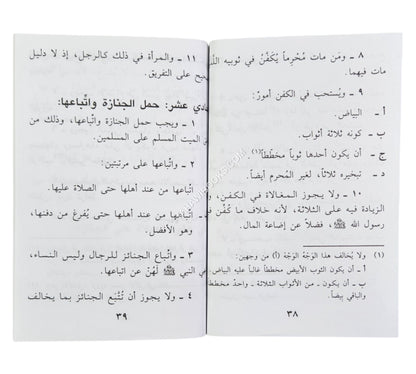 ٨ ـ ومَن مات مُحْرِماً يُكَفَّنُ في ثوبيه اللذين
مات فيهما.
٩ ـ ويُستحب في الكفن أمورٌ:
أ ـ البياض.
ب ـ كونه ثلاثة أثواب.
ج ـ أن يكون أحدها ثوباً مخططاً(١).
د ـ تبخيره ثلاثاً، لغير المُحرِم أيضاً.
١٠ ـ ولا يجوز المغالاة في الكفن، و
الزيادة فيه على الثلاثة، لأنه خلاف ما كُفِّنَ في
رسول الله ﷺ، فضلاً عن إضاعة المال.
(١) ولا يُخالف هذا الوَجْهُ الوَجْهَ (أ) من وجهين:
١ ـ أن يكون الثوب الأبيض مخططاً غالباً عليه البياض.
٢ ـ أن يكون ـ من الأثواب الثلاثة ـ واحد مخططاً
والباقي بيضاً.
٣٨
١١ ـ والمرأة في ذلك كالرجل، إذ لا دليل
يح على التفريق.
ادي عشر: حمل الجنازة واتِّباعها:
١ ـ ويجب حمل الجنازة واتِّباعها، وذلك من
الميت المسلم على المسلمين.
٢ ـ واتِّباعها على مرتبتين:
اتباعها من عند أهلها حتى الصلاة عليها.
ـ اتباهها من عند أهلها حتى يُفرغ من دفنها،
وهو الأفضل.
٣ ـ واتِّباع الجنائز للرجال وليس النساء،
النبي ﷺ لَهُنَّ عن اتباعها.
٤ ـ ولا يجوز أن تُتْبَع الجنائز بما يخالف
٣٩